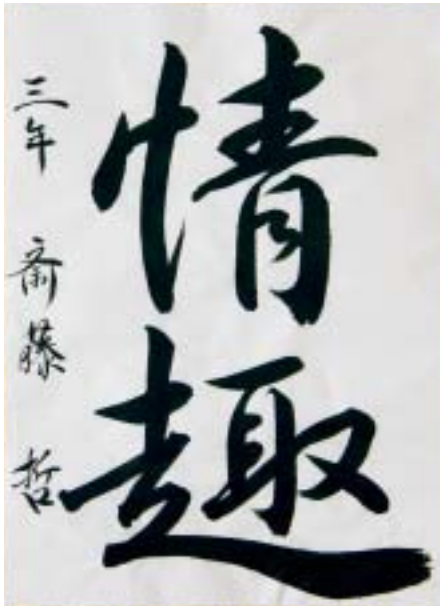 情趣
三年 斎藤 哲